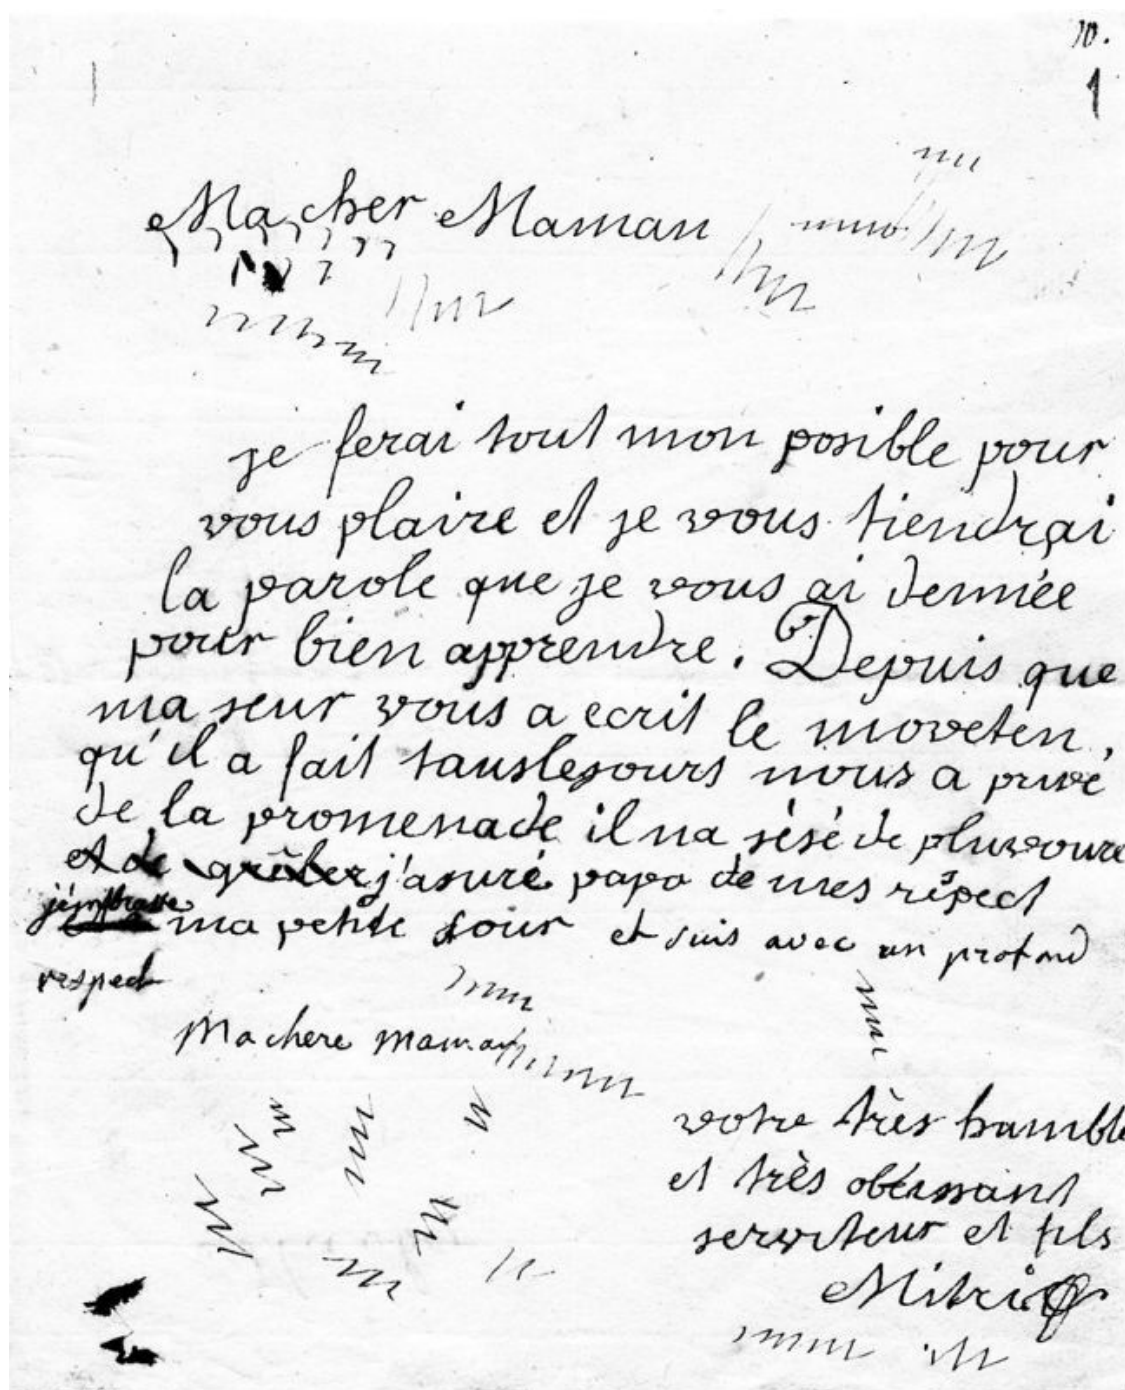 10.
1
Ma cher Maman
je ferai tout mon posible pour
vous plaire et je vous tiendrai
la parole que je vous ai dennée
pour bien apprendre. Depuis que
ma seur vous a ecrit le moveten,
qu'il a fait tauslesjours nous a privé
de la promenade il na sésé de pluvoure
et de grêler j'asuré papa de mes réspect
j'embrasse ma petite sour et suis avec un profond
respect
Ma chere maman
votre très humble
et très obeissant
serviteur et fils
Mitri